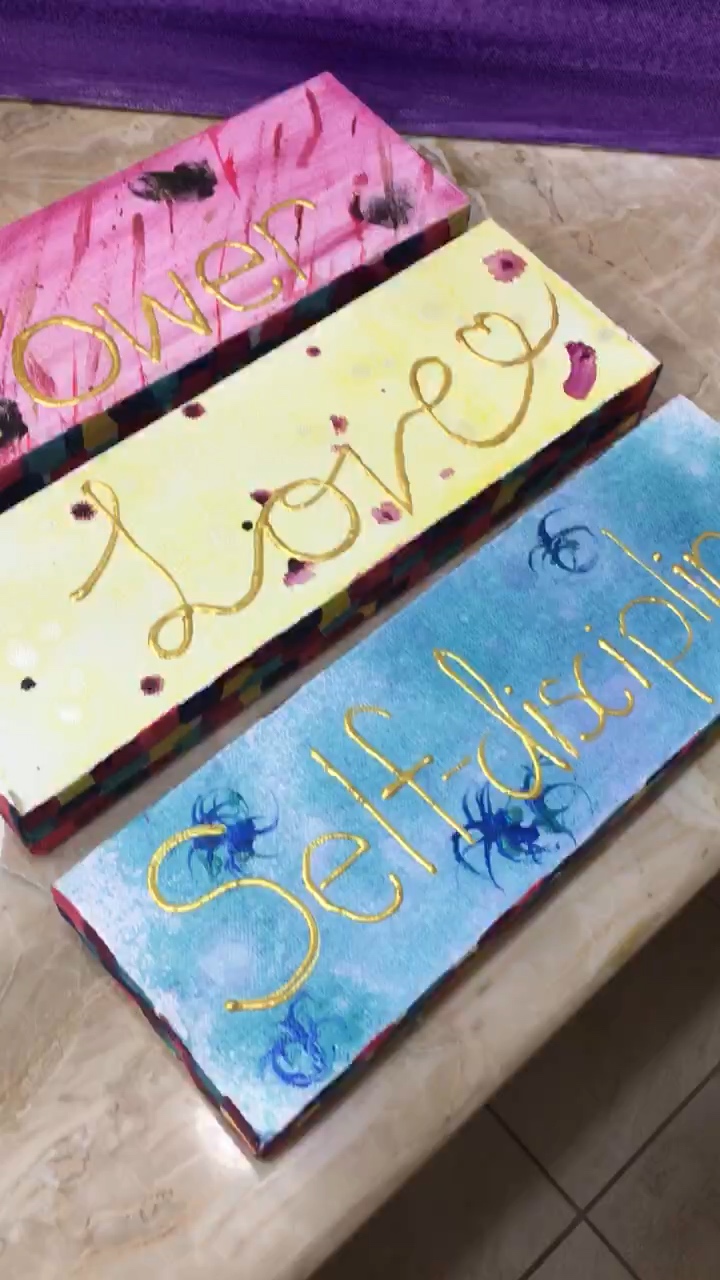 ower
Love
Self-disciplin